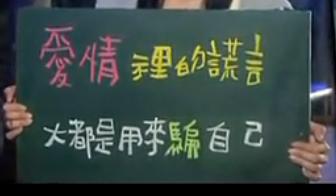 愛情裡的謊言
大都是用來騙自己